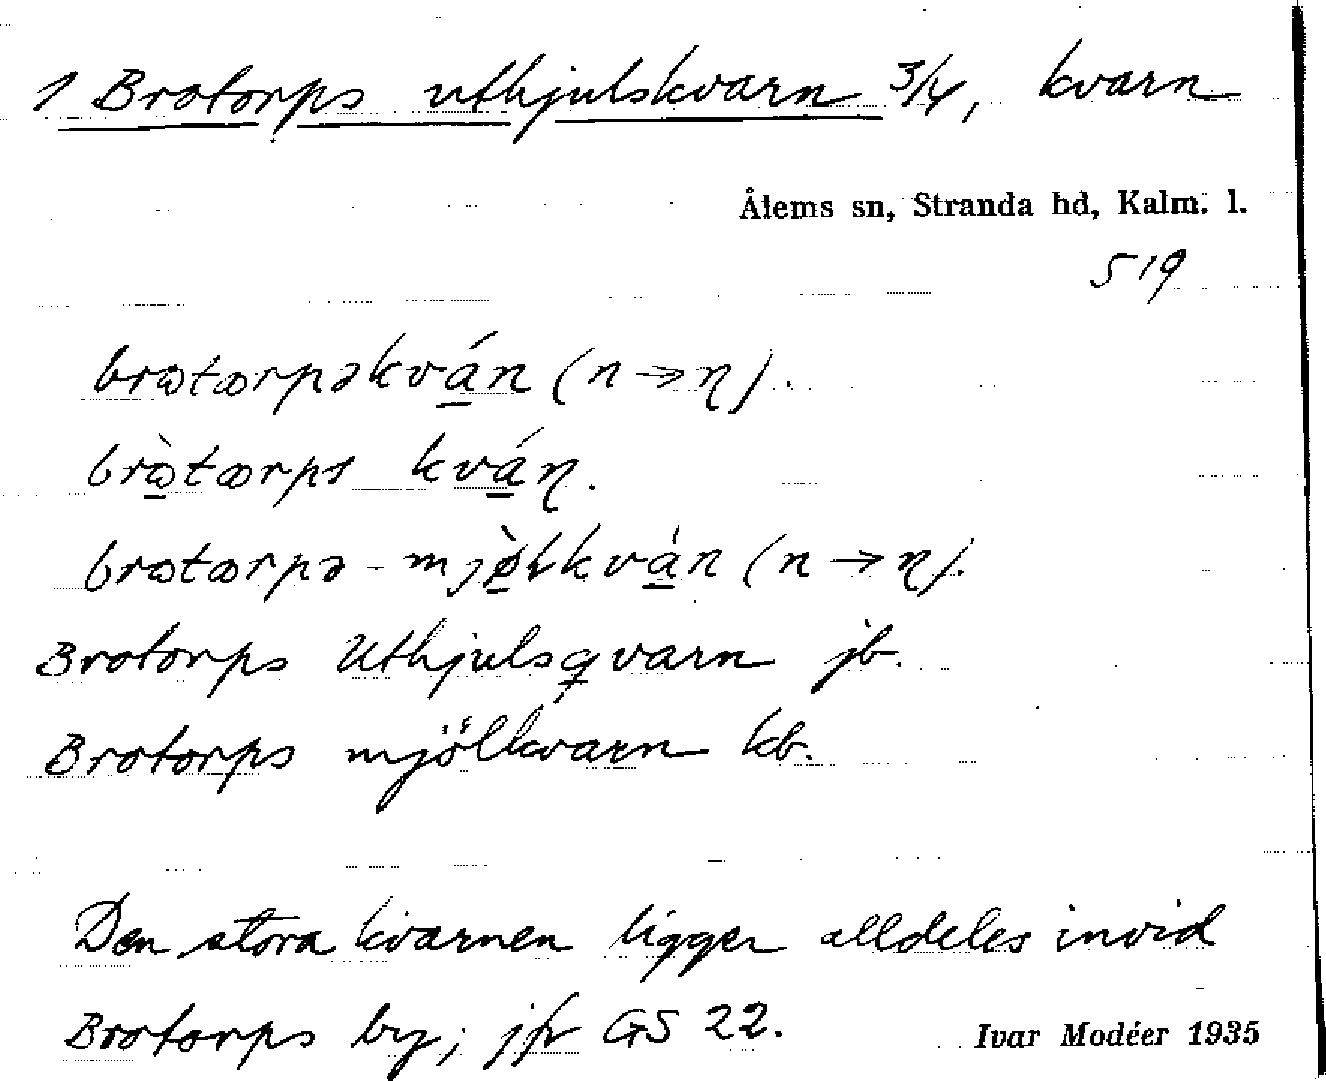 1 Brotorps uthjulskvarn 3/4, kvarn
Ålems sn, Stranda hd, Kalm. l.
519
brωtωrpəkván (n → ɳ).
brὼtωrps kváɳ.
brωtωrpə - mjø̀lkván (n → ɳ).
Brotorps Uthjulsqvarn jb.
Brotorps mjölkvarn kb.
Den stora kvarnen ligger alldeles invid
Brotorps by; jfr GS 22.
Ivar Modéer 1935